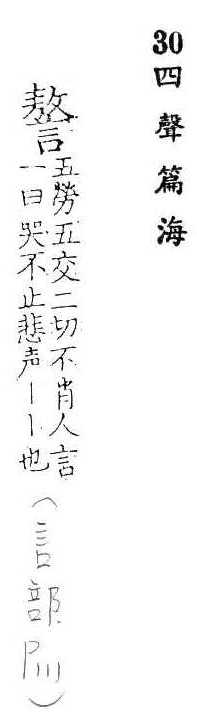 30四聲篇海
謷
五勞五交二切不肖人言
一曰哭不止悲声丨丨也
(言部P111)